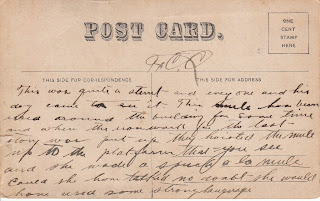 POST CARD.
ONE
CENT
STAMP
HERE
THIS SIDE FOR CORRESPONDENCE
THIS SIDE FOR ADDRESS
This was quite a stunt and everyone and his
day came to see it. This mule has been
used around the building for some time
and when the iron work for the last
story was put up they hoisted the mule
up to the platform that you see
and she made a speech a la mule
Could she have talked no doubt she would
have used some strong language